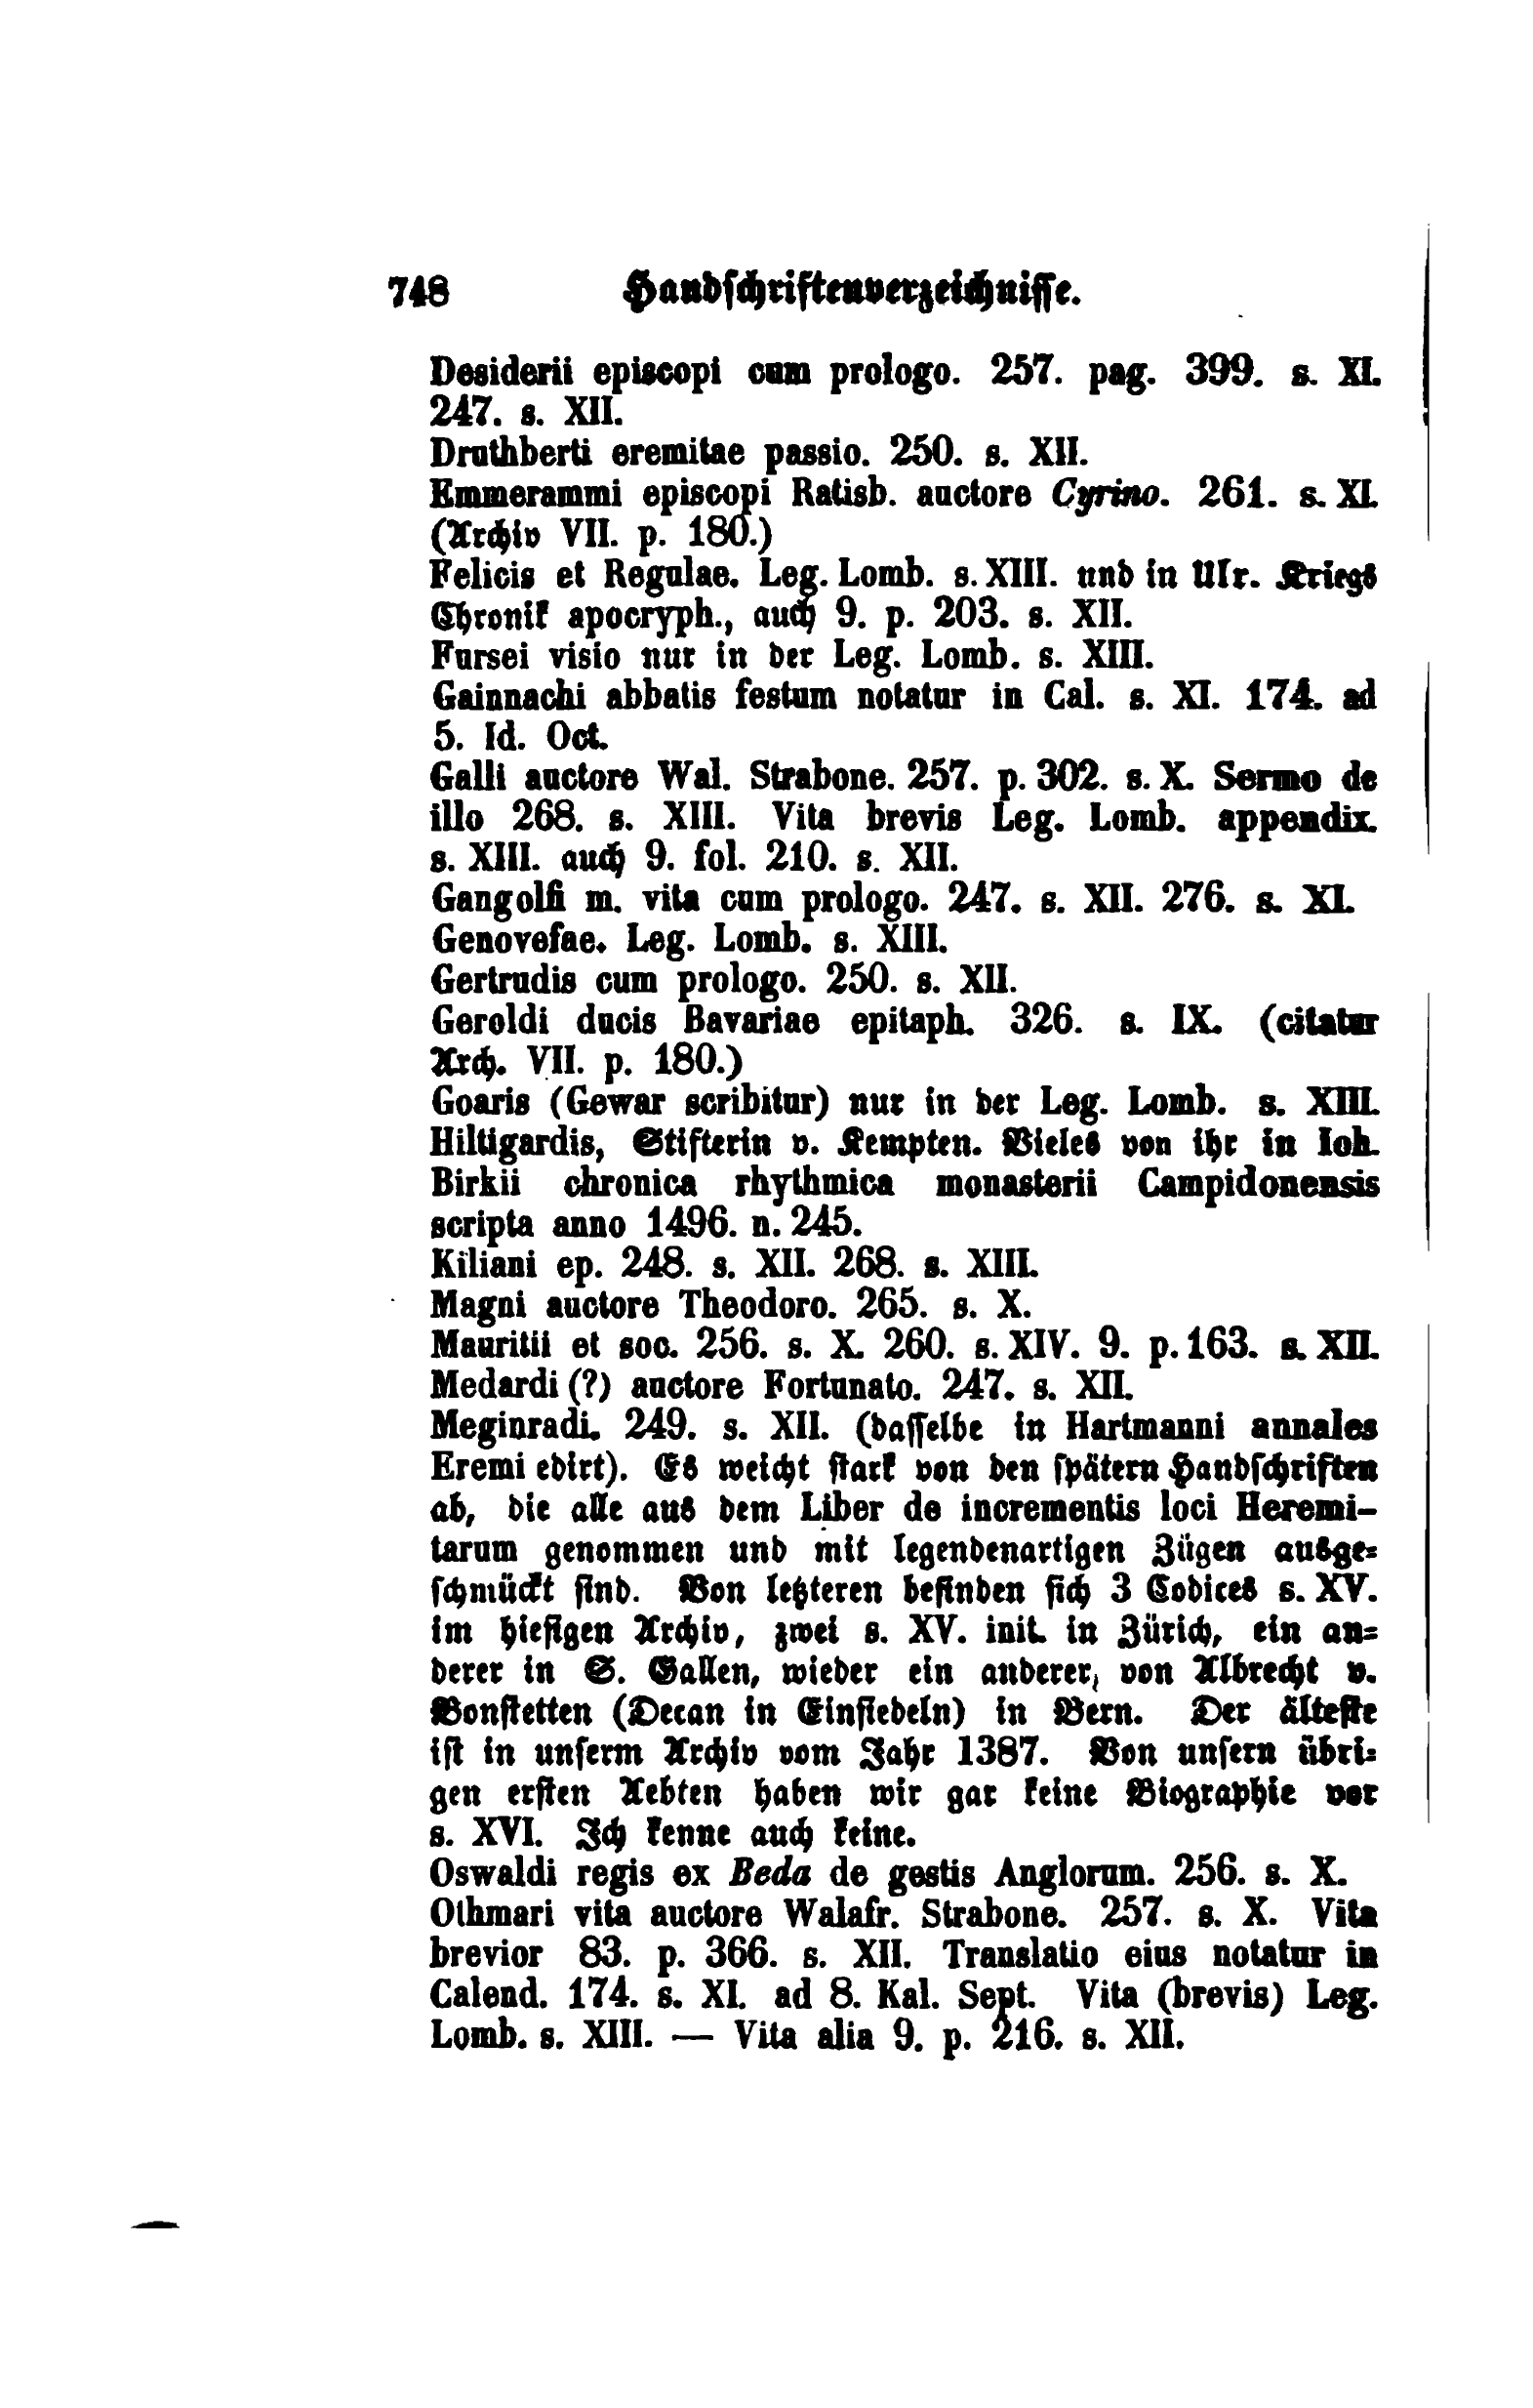 748 Handschriftenverzeichnisse.
Desiderii episcopi cum prologo. 257. pag. 399. s. XI.
247. s. XII.
Druthberti eremitae passio. 250. s. XII.
Emmerammi episcopi Ratisb. auctore Cyrino. 261. s. XI.
(Archiv VII. p. 180.)
Felicis et Regulae. Leg. Lomb. s. XIII. und in Ulr. Kriegs
Chronik apocryph., auch 9. p. 203. s. XII.
Fursei visio nur in der Leg. Lomb. s. XIII.
Gainnachi abbatis festum notatur in Cal. s. XI. 174. ad
5. Id. Oct.
Galli auctore Wal. Strabone. 257. p. 302. s. X. Sermo de
illo 268. s. XIII. Vita brevis Leg. Lomb. appendix.
s. XIII. auch 9. fol. 210. s. XII.
Gangolfi m. vita cum prologo. 247. s. XII. 276. s. XI.
Genovefae. Leg. Lomb. s. XIII.
Gertrudis cum prologo. 250. s. XII.
Geroldi ducis Bavariae epitaph. 326. s. IX. (citatur
Arch. VII. p. 180.)
Goaris (Gewar scribitur) nur in der Leg. Lomb. s. XIII.
Hiltigardis, Stifterin v. Kempten. Vieles von ihr in Ioh.
Birkii chronica rhythmica monasterii Campidonensis
scripta anno 1496. n. 245.
Kiliani ep. 248. s. XII. 268. s. XIII.
Magni auctore Theodoro. 265. s. X.
Mauritii et soc. 256. s. X. 260. s. XIV. 9. p. 163. s. XII.
Medardi (?) auctore Fortunato. 247. s. XII.
Meginradi. 249. s. XII. (dasselbe in Hartmanni annales
Eremi edirt). Es weicht stark von den spätern Handschriften
ab, die alle aus dem Liber de incrementis loci Heremi-
tarum genommen und mit legendenartigen Zügen ausge-
schmückt sind. Von letzteren befinden sich 3 Codices s. XV.
im hiesigen Archiv, zwei s. XV. init. in Zürich, ein an-
derer in S. Gallen, wieder ein anderer, von Albrecht v.
Bonstetten (Decan in Einsiedeln) in Bern. Der älteste
ist in unserm Archiv vom Jahr 1387. Von unsern übri-
gen ersten Aebten haben wir gar keine Biographie vor
s. XVI. Ich kenne auch keine.
Oswaldi regis ex Beda de gestis Anglorum. 256. s. X.
Othmari vita auctore Walafr. Strabone. 257. s. X. Vita
brevior 83. p. 366. s. XII. Translatio eius notatur in
Calend. 174. s. XI. ad 8. Kal. Sept. Vita (brevis) Leg.
Lomb. s. XIII. — Vita alia 9. p. 216. s. XII.